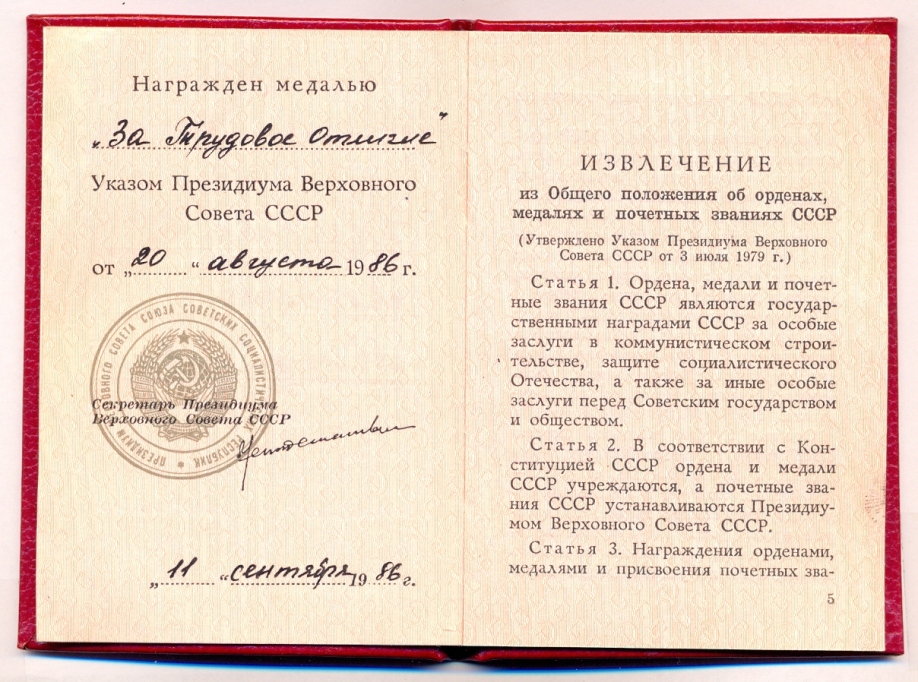 Награжден медалью
„За Трудовое Отличие"
Указом Президиума Верховного
Совета СССР
от „20 “ августа 1986 г.
ПРЕЗИДИУМ ВЕРХОВНОГО СОВЕТА СОЮЗА СОВЕТСКИХ СОЦИАЛИСТИЧЕСКИХ РЕСПУБЛИК
Секретарь Президиума
Верховного Совета СССР
„11 “ сентября 1986 г.
ИЗВЛЕЧЕНИЕ
из Общего положения об орденах,
медалях и почетных званиях СССР
(Утверждено Указом Президиума Верховного
Совета СССР от 3 июля 1979 г.)
Статья 1. Ордена, медали и почет-
ные звания СССР являются государ-
ственными наградами СССР за особые
заслуги в коммунистическом строи-
тельстве, защите социалистического
Отечества, а также за иные особые
заслуги перед Советским государством
и обществом.
Статья 2. В соответствии с Кон-
ституцией СССР ордена и медали
СССР учреждаются, а почетные зва-
ния СССР устанавливаются Президиу-
мом Верховного Совета СССР.
Статья 3. Награждения орденами,
медалями и присвоения почетных зва-
5